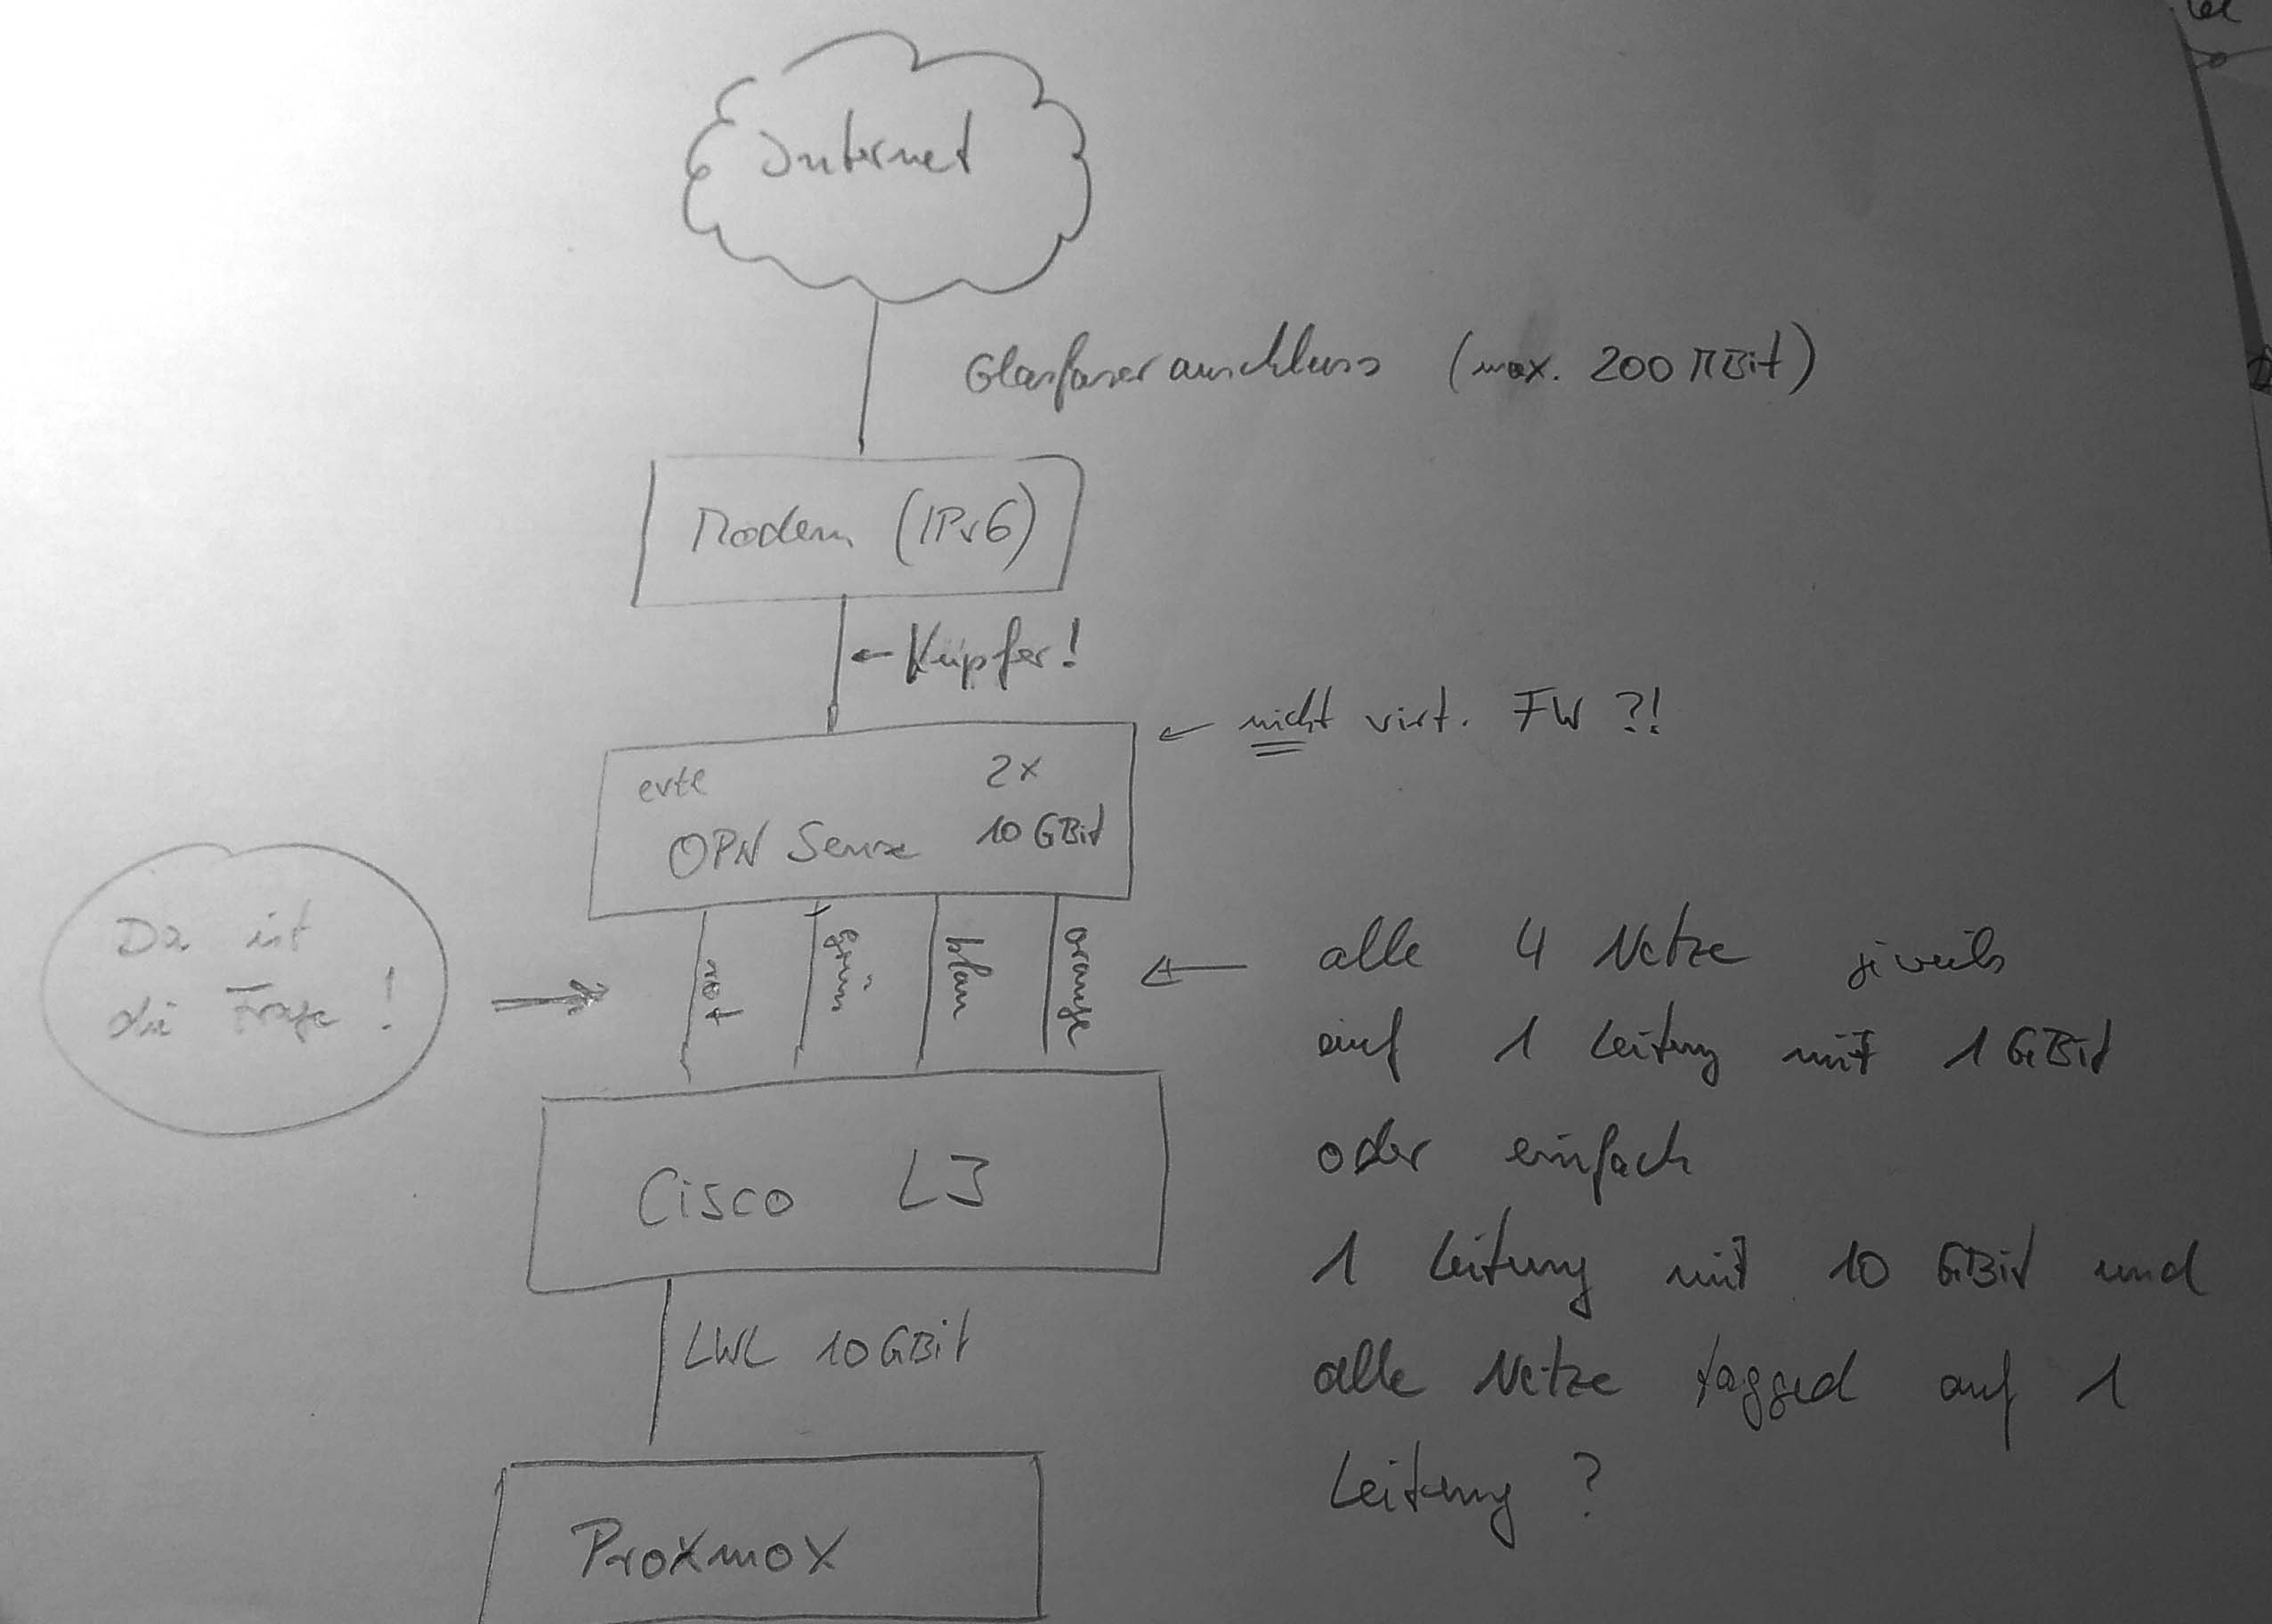 Internet
Glasfaseranschluss (max. 200 MBit)
Modem (IPv6)
← Kupfer!
← nicht virt. FW ?!
2x
OPN Sense 10 GBit
Da ist
die Frage!
rot
grün
blau
orange
← alle 4 Netze jeweils
auf 1 Leitung mit 1 GBit
oder einfach
1 Leitung mit 10 GBit und
alle Netze tagged auf 1
Leitung ?
Cisco L3
LWL 10 GBit
Proxmox